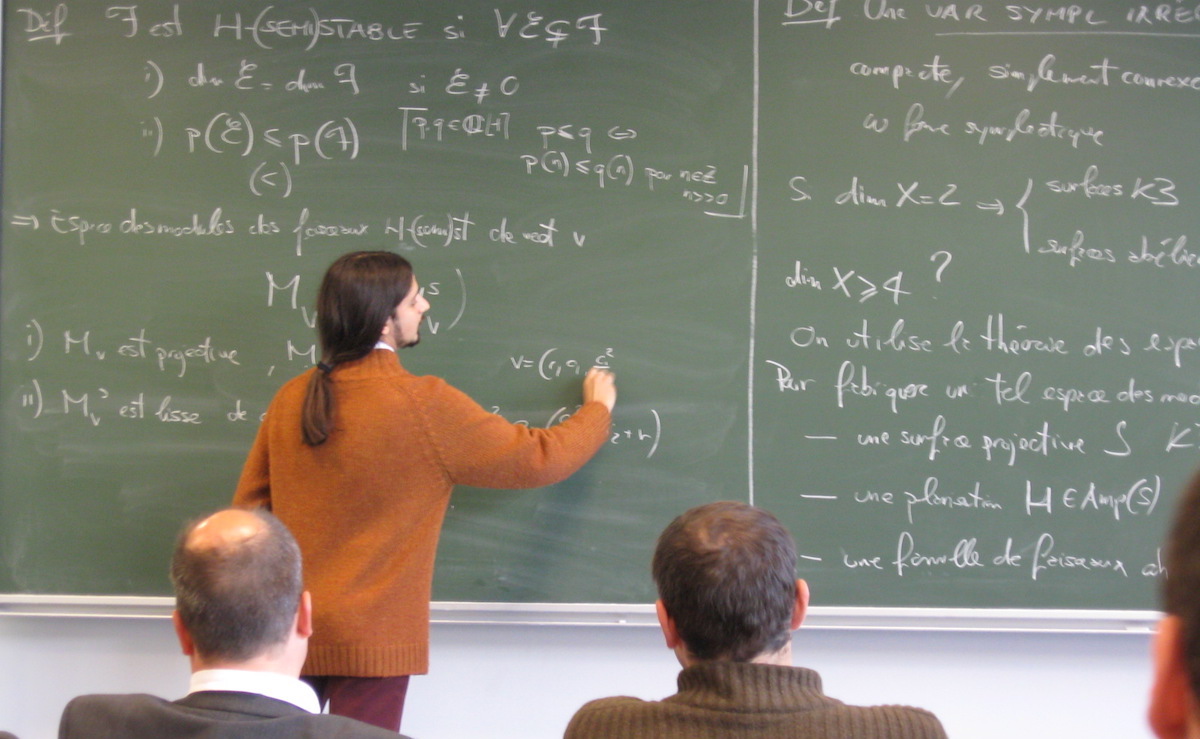 Déf F est H-(SEMI)STABLE si ∀ E ⊊ F
i) dim E = dim F si E ≠ 0
ii) p(E) ≤ p(F) p,q ∈ ℚ[t] p ≤ q ⇔
(<) p(n) ≤ q(n) pour n∈Z
n>>0
⇒ Espace des modules des faisceaux H-(semi)st de vect v
M v s v )
i) M v est projective , M
ii) M v s est lisse de
v = (r, c1, c1²
2 + r)
Déf Une VAR SYMPL IRRÉ
compacte, simplement connexe
ω forme symplectique
Si dim X = 2 ⇒ { surfaces K3
surfaces abélie
dim X ≥ 4 ?
On utilise la théorie des espa
Pour fabriquer un tel espace des mod
— une surface projective S K
— une polarisation H ∈ Amp(S)
— une famille de faisceaux coh